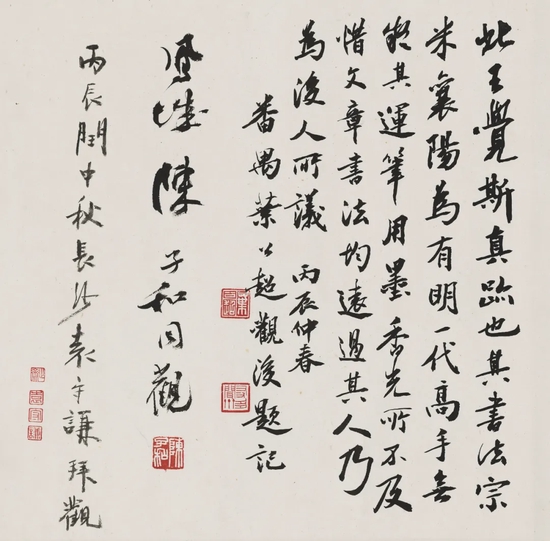 此王覺斯真跡也其書法宗
米襄陽為有明一代高手無
其運筆用墨香光所不及
惜文章書法均遠過其人乃
為後人所議 丙辰仲春
番禺葉公超觀後題記
鳳城陳子和同觀
陳子和
丙辰閏中秋長沙袁守謙拜觀